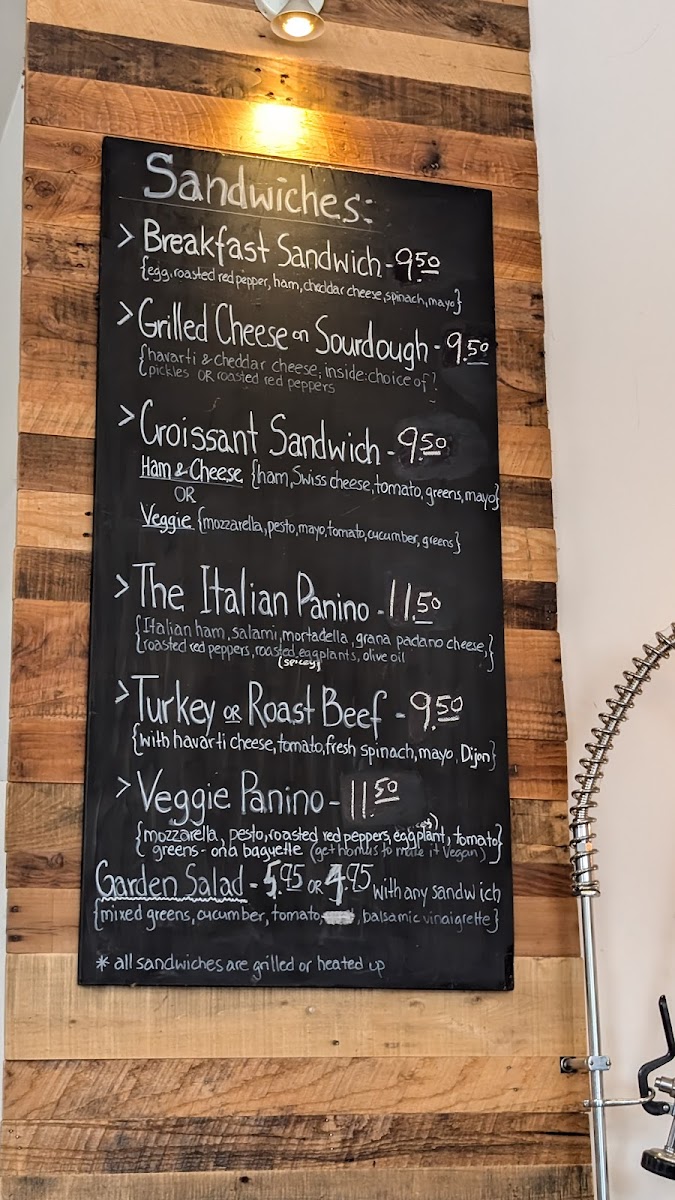 Sandwiches:
> Breakfast Sandwich - 9.50
{egg, roasted red pepper, ham, cheddar cheese, spinach, mayo}
> Grilled Cheese on Sourdough - 9.50
{havarti & cheddar cheese, inside: choice of
pickles OR roasted red peppers
> Croissant Sandwich - 9.50
Ham & Cheese {ham, Swiss cheese, tomato, greens, mayo}
OR
Veggie {mozzarella, pesto, mayo, tomato, cucumber, greens}
> The Italian Panino - 11.50
{Italian ham, salami, mortadella, grana padano cheese,
roasted red peppers, roasted eggplants, olive oil}
(spicey)
> Turkey OR Roast Beef - 9.50
{with havarti cheese, tomato, fresh spinach, mayo, Dijon}
> Veggie Panino - 11.50
{mozzarella, pesto, roasted red peppers, eggplant, tomato}
greens - on a baguette (get homus to make it vegan)
Garden Salad - 5.95 OR 4.95 with any sandwich
{mixed greens, cucumber, tomato, , balsamic vinaigrette}
* all sandwiches are grilled or heated up